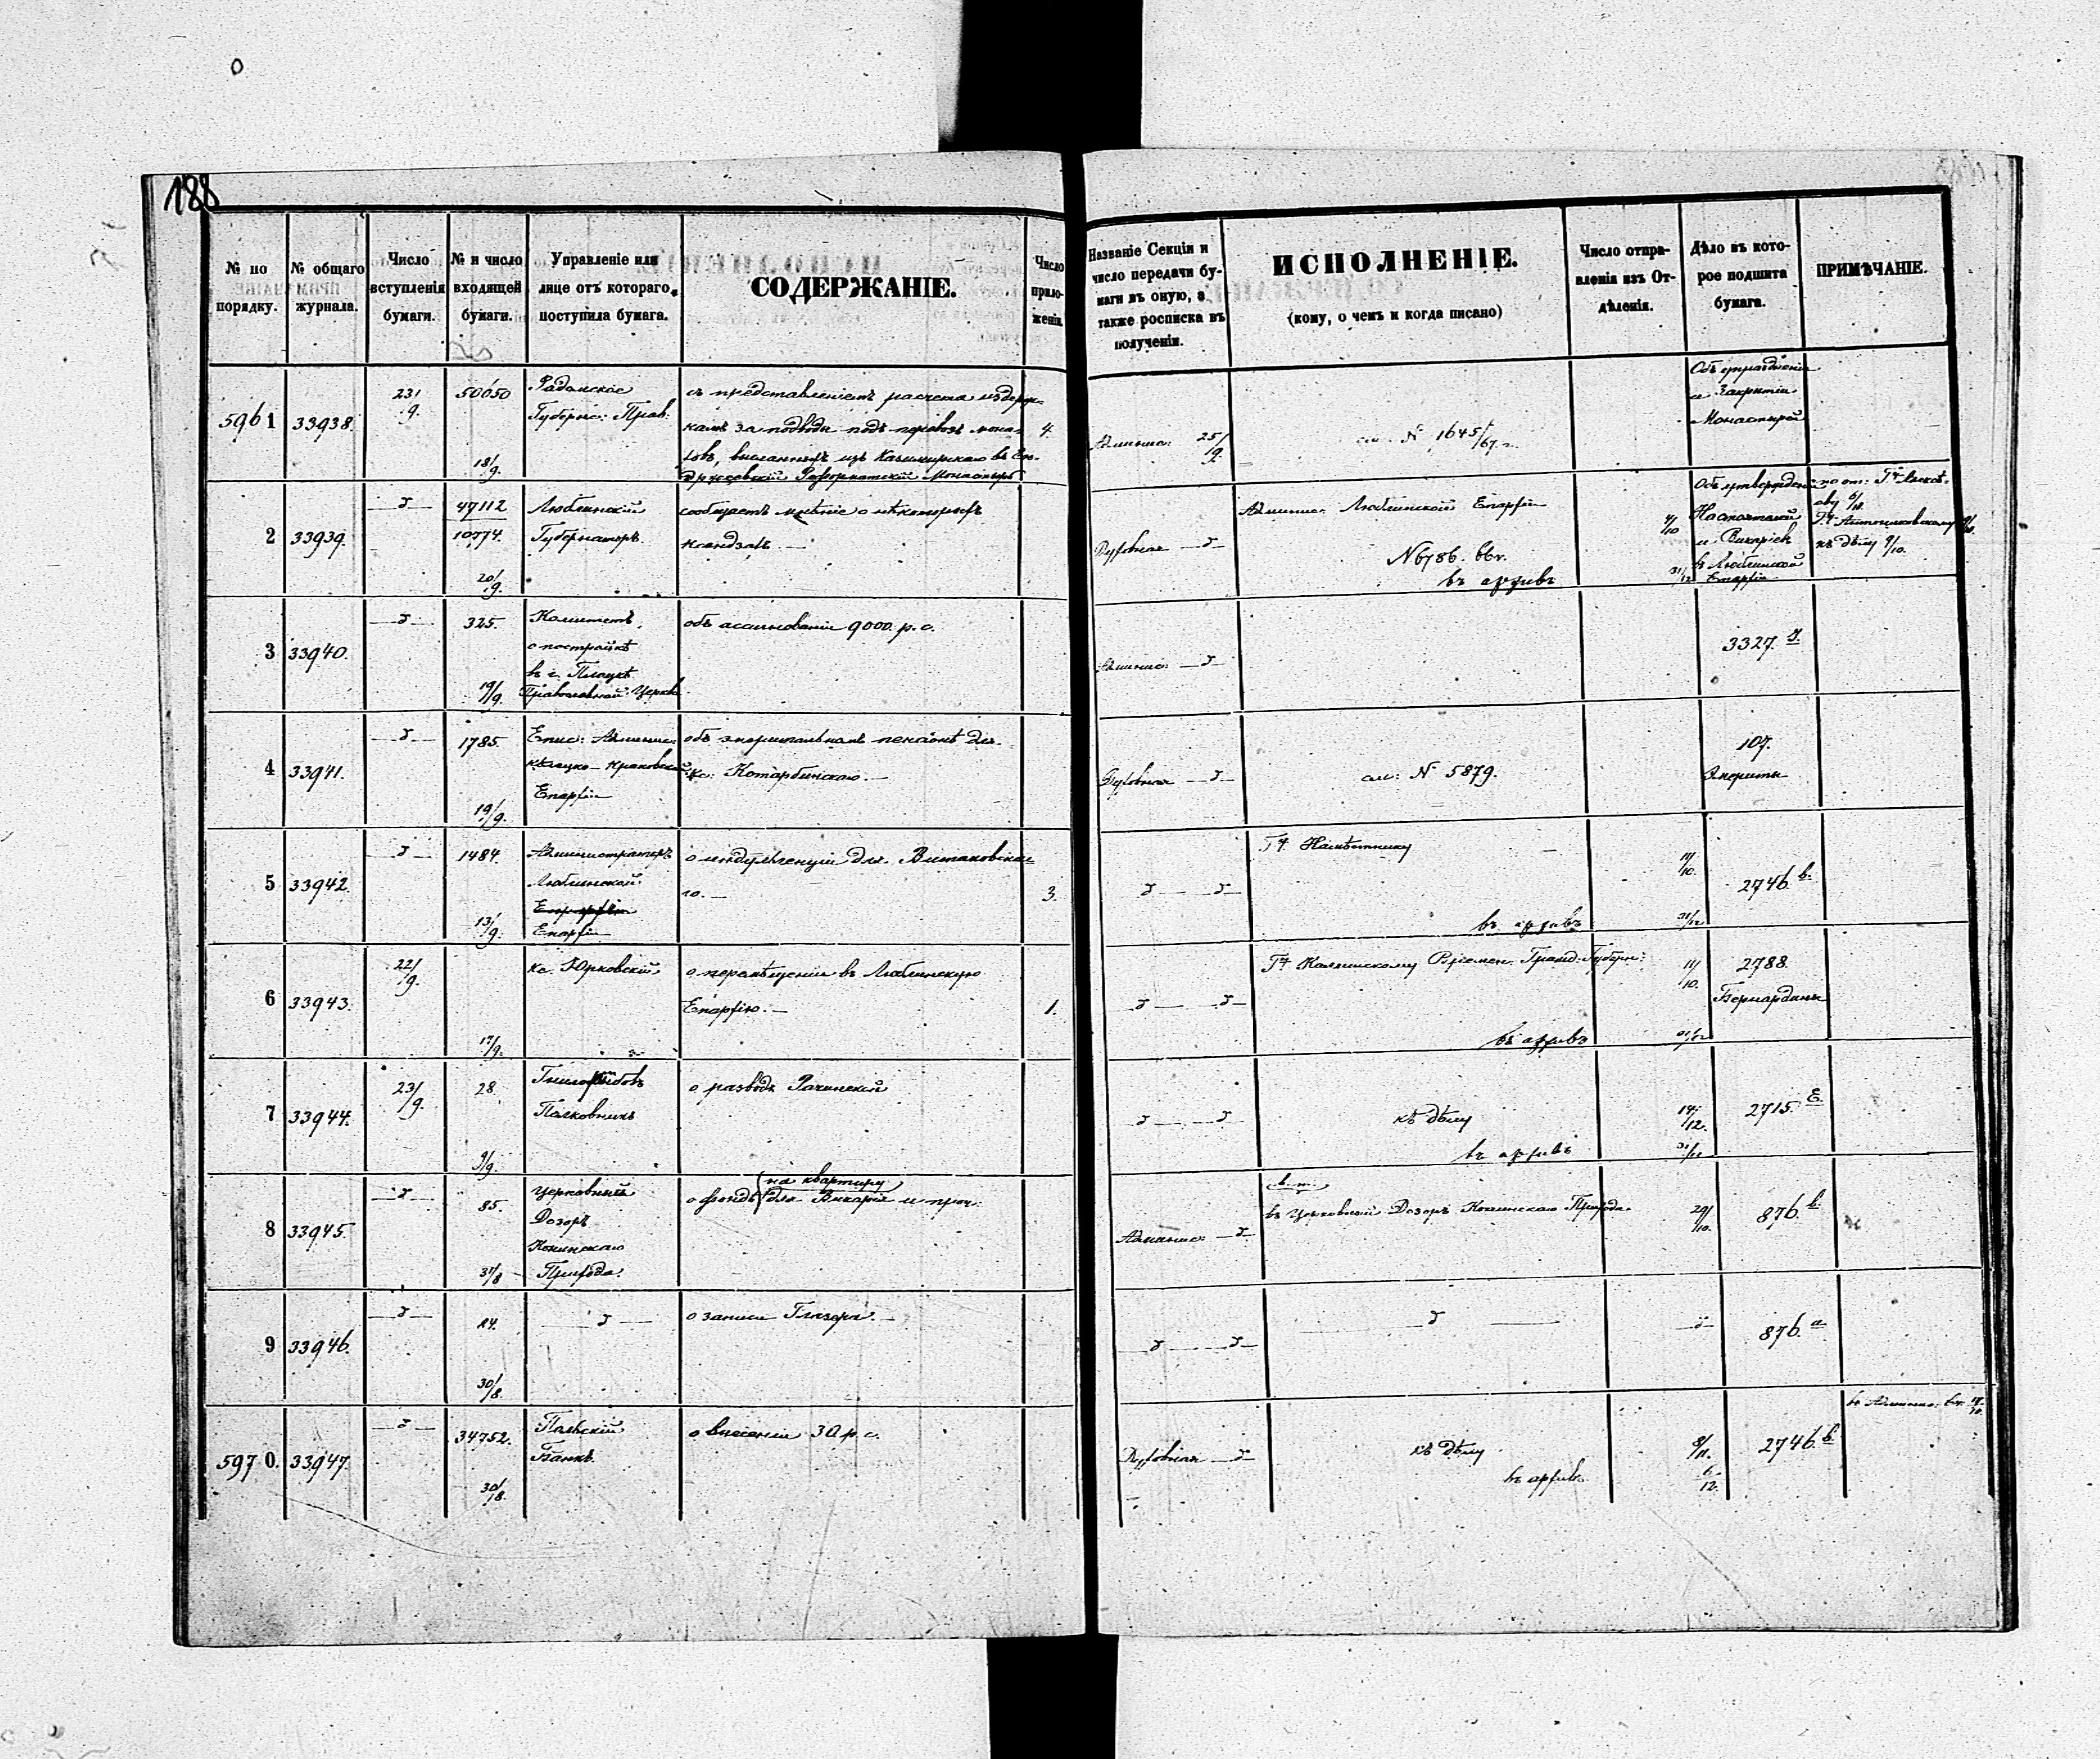 188
№ по порядку.
№ общаго журнала.
Число вступленія бумаги.
№ и число входящей бумаги.
Управленіе или лице отъ котораго поступила бумага.
СОДЕРЖАНІЕ.
Число приложеній.
Названіе Секціи и число передачи бумаги въ оную, а также росписка въ полученіи.
ИСПОЛНЕНІЕ.
(кому, о чемъ и когда писано)
Число отправленія изъ Отдѣленія.
Дѣло въ которое подшита бумага.
ПРИМѢЧАНІЕ.
5961
33938.
23/9.
50050
18/9.
Радомское
Губернс: Прав:
съ представленіемъ расчета издерж-
камъ за подводы подъ перевозъ мона-
ховъ, высланныхъ изъ Казимирскаго въ Ен-
држеевскій Реформатскій Монастырь
4.
Админис: 25/9.
см. № 1645/67. г.
Объ упраздненіи
и Закрытіи
Монастырей
2
33939.
47112
10774.
20/9.
Люблинскій
Губернаторъ.
сообщаетъ мнѣніе о нѣкоторыхъ
ксендзахъ. —
Духовная
Админис: Люблинской Епархіи
N 6786. 66 г.
въ архивъ
4/10
31/12
Объ утвержденіи
Настоятелей
и Викаріевъ
въ Люблинской
Епархіи
къ дѣлу 9/10.
3
33940.
325.
19/9.
Комитетъ
о постройкѣ
въ г. Плоцкѣ
Православной Церкви
объ ассигнованіи 9000. р. с.
Админис:
3327.
4
33941.
1785.
19/9.
Епис: Админис:
Кѣлецко-Краковской
Епархіи
объ эмеритальномъ пенсіонѣ для
кс: Котарбинскаго. —
Духовная
см: N 5879.
107.
Эмериты
5
33942.
1484.
13/9.
Администраторъ
Люблинской
Епархіи
Епархіи
о индульгенціи для Витановска-
го. —
3.
Гну Намѣстнику
въ архивъ
11/10.
31/12
2746. в.
6
33943.
22/9.
17/9.
Кс. Юрковскій
о перемѣщеніи въ Люблинскую
Епархію. —
1.
Гну Калишскому Времен. Гражд: Губерн:
въ архивъ
11/10.
31/12
2788.
Бернардины
7
33944.
23/9.
28.
9/9.
Полковникъ
о разводѣ Рачинской
къ дѣлу
въ архивъ
14/12.
31/12
2715. Е.
8
33945.
85.
31/8
Церковный
Дозоръ
Конинскаго
Прихода.
на квартиру
о фондѣ для Викарія и проч.
Админис:
въ Церковный Дозоръ Конинскаго Прихода.
29/10.
876. в.
9
33946.
14.
30/8.
о записи Глазера. —
876. а
5970.
33947.
34752.
30/8.
Польскій
Банкъ.
о внесеніи 30 р. с.
Духовная
къ дѣлу
въ архивъ.
8/11.
6/12.
2746. в.